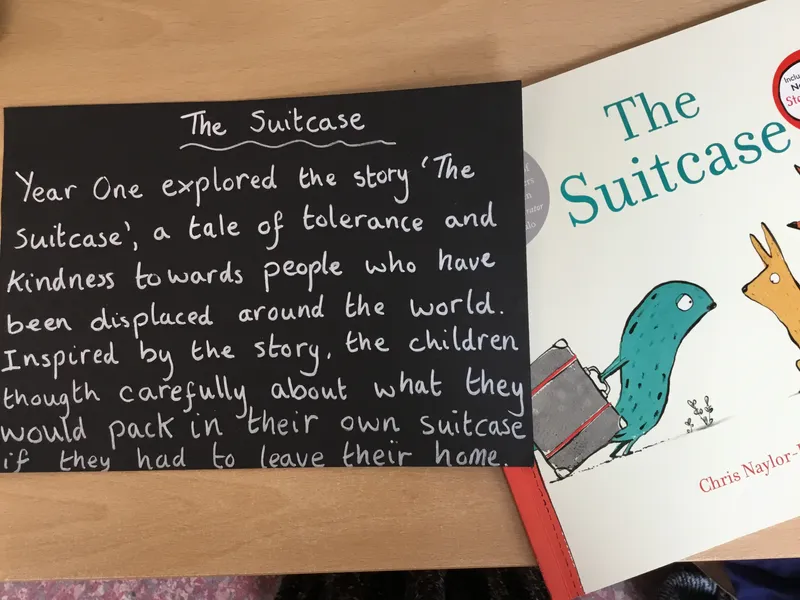 The Suitcase
Year One explored the story 'The
Suitcase', a tale of tolerance and
kindness towards people who have
been displaced around the world.
Inspired by the story, the children
thougth carefully about what they
would pack in their own suitcase
if they had to leave their home.
The
Suitcase
Chris Naylor-